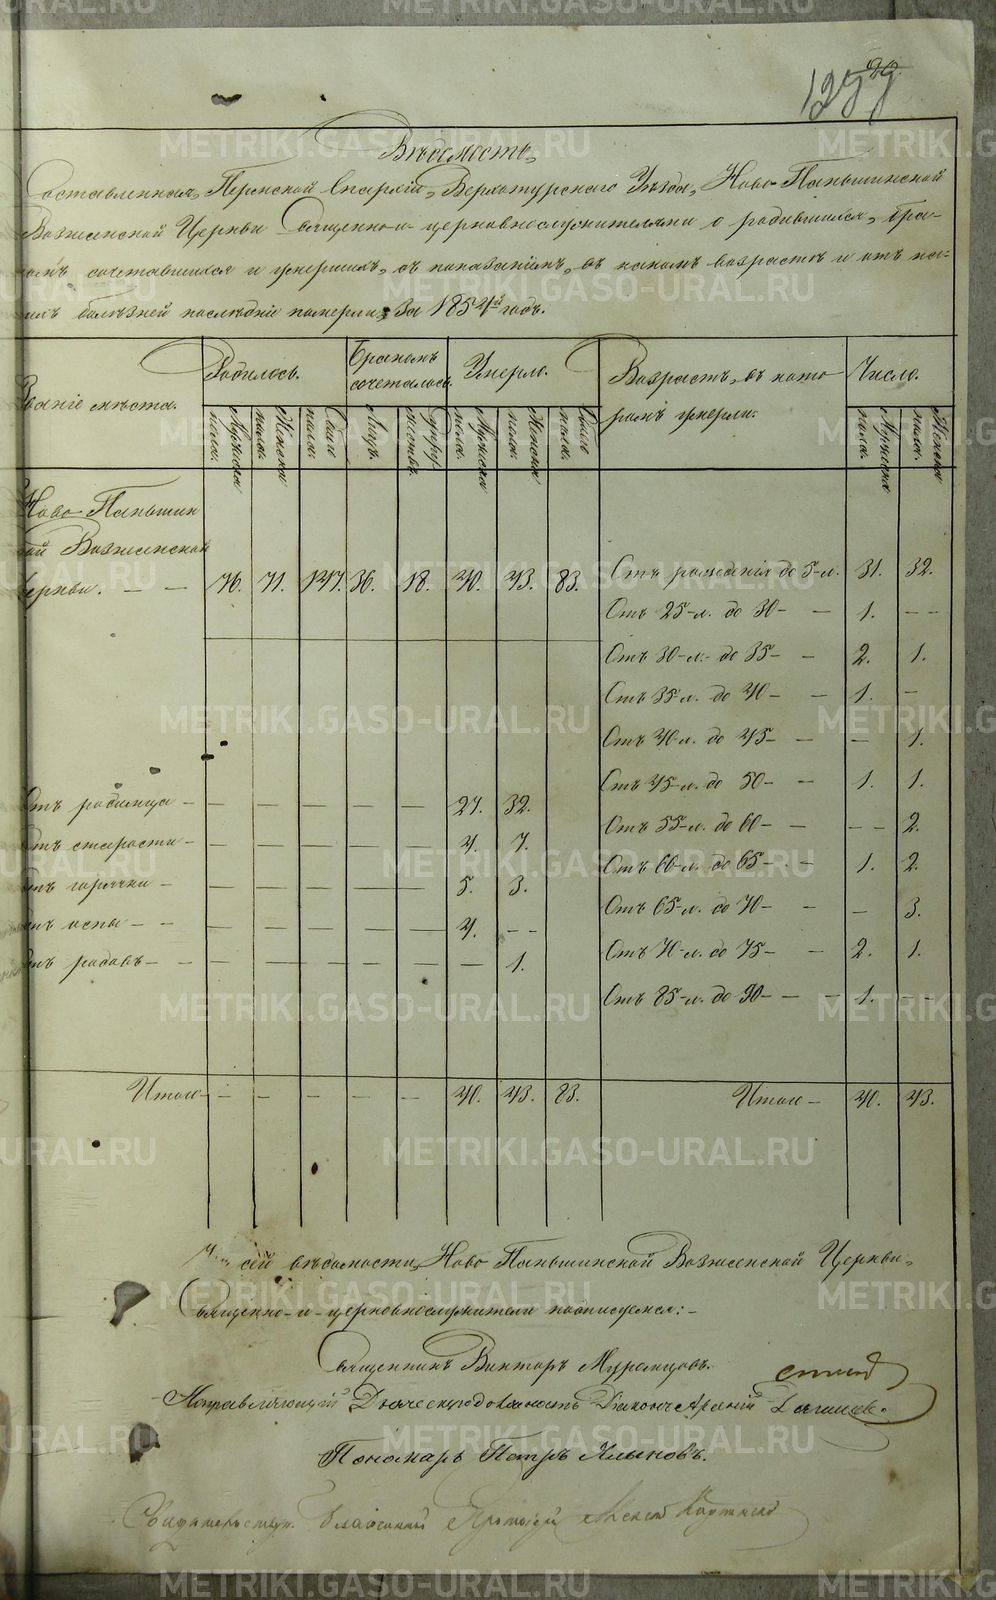 29.
Вѣдомость,
Составленная, Пермской Епархіи, Верхотурскаго Уѣзда, Ново-Паньшинской
Вознсенской Церкви священно-и-церковнослужителями о родившихся, бра-
комъ сочетавшихся и умершихъ, съ показаніемъ, въ какомъ возрастѣ и отъ ка-
ихъ болѣзней послѣдніе померли, За 1854й годъ.
ваніе мѣста.
Родилось.
Бракомъ сочеталось.
Умерло.
Возрастъ, въ кото-
ромъ умерли.
Число.
Мужска пола.
Женска пола.
Обоего пола.
Лицъ.
Супружествъ.
Мужска пола.
Женска пола.
Обоего пола.
Мужска пола.
Женска пола.
Ново-Паньшин
кой Вознсенской
Церкви. — — 76. 71. 147. 36. 18. 40. 43. 83. Отъ рожденія до 5-л. 31. 32.
Отъ 25-л. до 30- — 1. — —
Отъ 30-л.- до 35- — 2. 1.
Отъ 35-л. до 40- — 1. —
Отъ 40-л. до 45- — — 1.
Отъ 45-л. до 50- — 1. 1.
Отъ родимца — — — — — — 27. 32.
Отъ 55-л. до 60- — — — 2.
Отъ старости — 4. 7.
Отъ 60-л. до 65- — 1. 2.
отъ горячки — — — — — — 5. 3.
Отъ 65-л. до 70- — — 3.
отъ оспы — — — — — — — 4. — —
Отъ 70-л. до 75- — 2. 1.
отъ родовъ — — — — — — — 1.
Отъ 85-л. до 90- — — 1. — —
Итого — — — — — — 40. 43. 83. Итого — 40. 43.
сей вѣдомости, Ново Паньшинской Вознсенской Церкви,
Священно-и-церковнослужители подписуемся:-
Священникъ Викторъ Муромцовъ.
Исправляющій Дьяческую должность Діаконъ
Пономарь Петръ Клыковъ.
Благочинный Протоіерей
METRIKI.GASO-URAL.RU